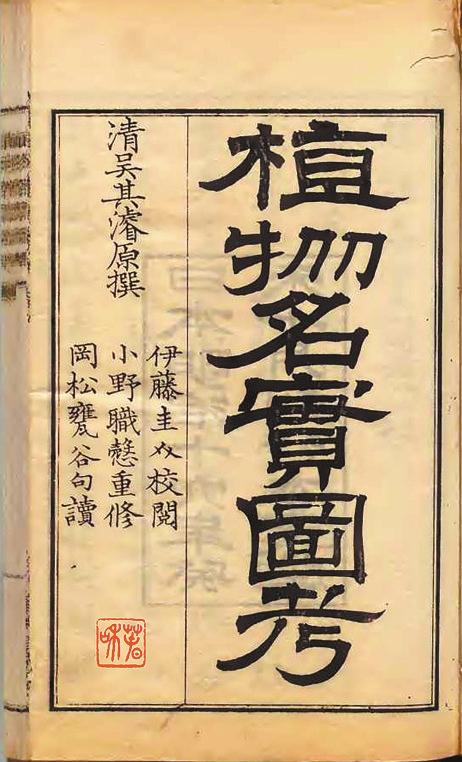 植物名實圖考
清吴其濬原撰
伊藤圭介校閱
小野職愨重修
岡松甕谷句讀